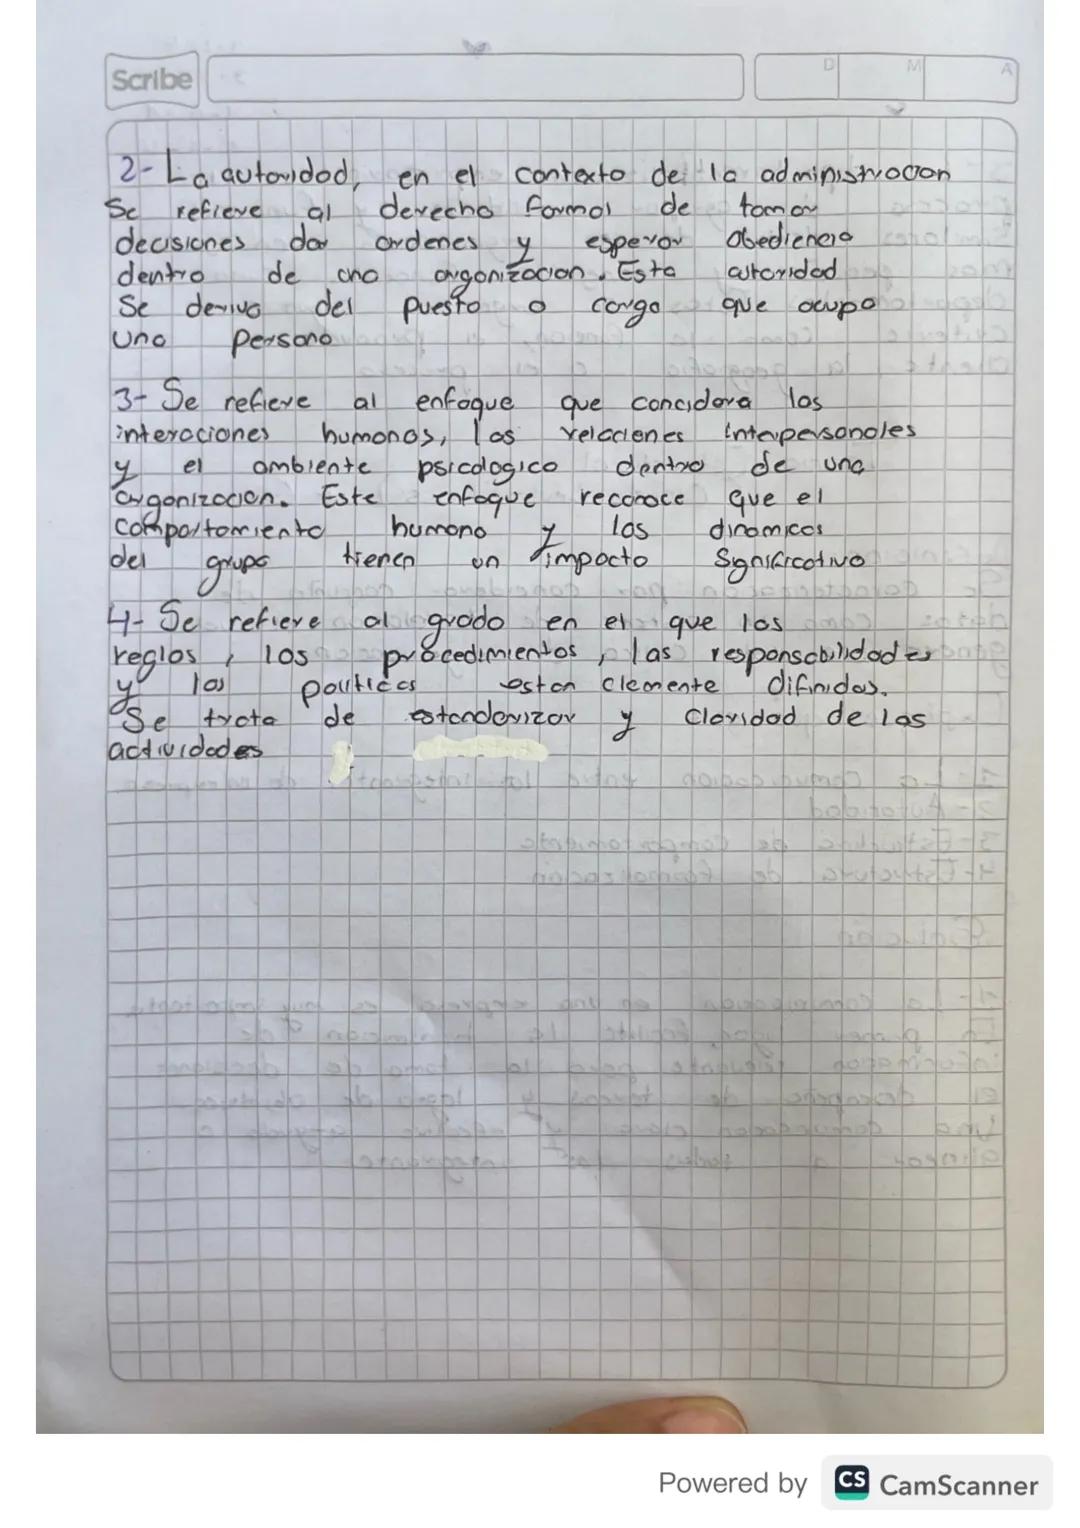 Scribe
D M A
2- La autoridad, en el contexto de la administracion
Se refieve al derecho formal de tomar
decisiones dar ordenes y esperar obediencia
dentro de una organizacion. Esta autoridad
Se deriva del puesto o cargo que ocupa
una persona
3- Se refieve al enfoque que concidera las
interaciones humanas, las relaciones interpersonales
y el ambiente psicologico dentro de una
organizacion. Este enfoque reconoce que el
comportamiento humano y las dinamicas
del grupo tienen un impacto Significativo
4- Se refieve al grado en el que las
reglas, los procedimientos, las responsabilidades
y las politicas estan clemente difinidas.
Se trata de estandarizar y claridad de las
actividades
Powered by CS CamScanner